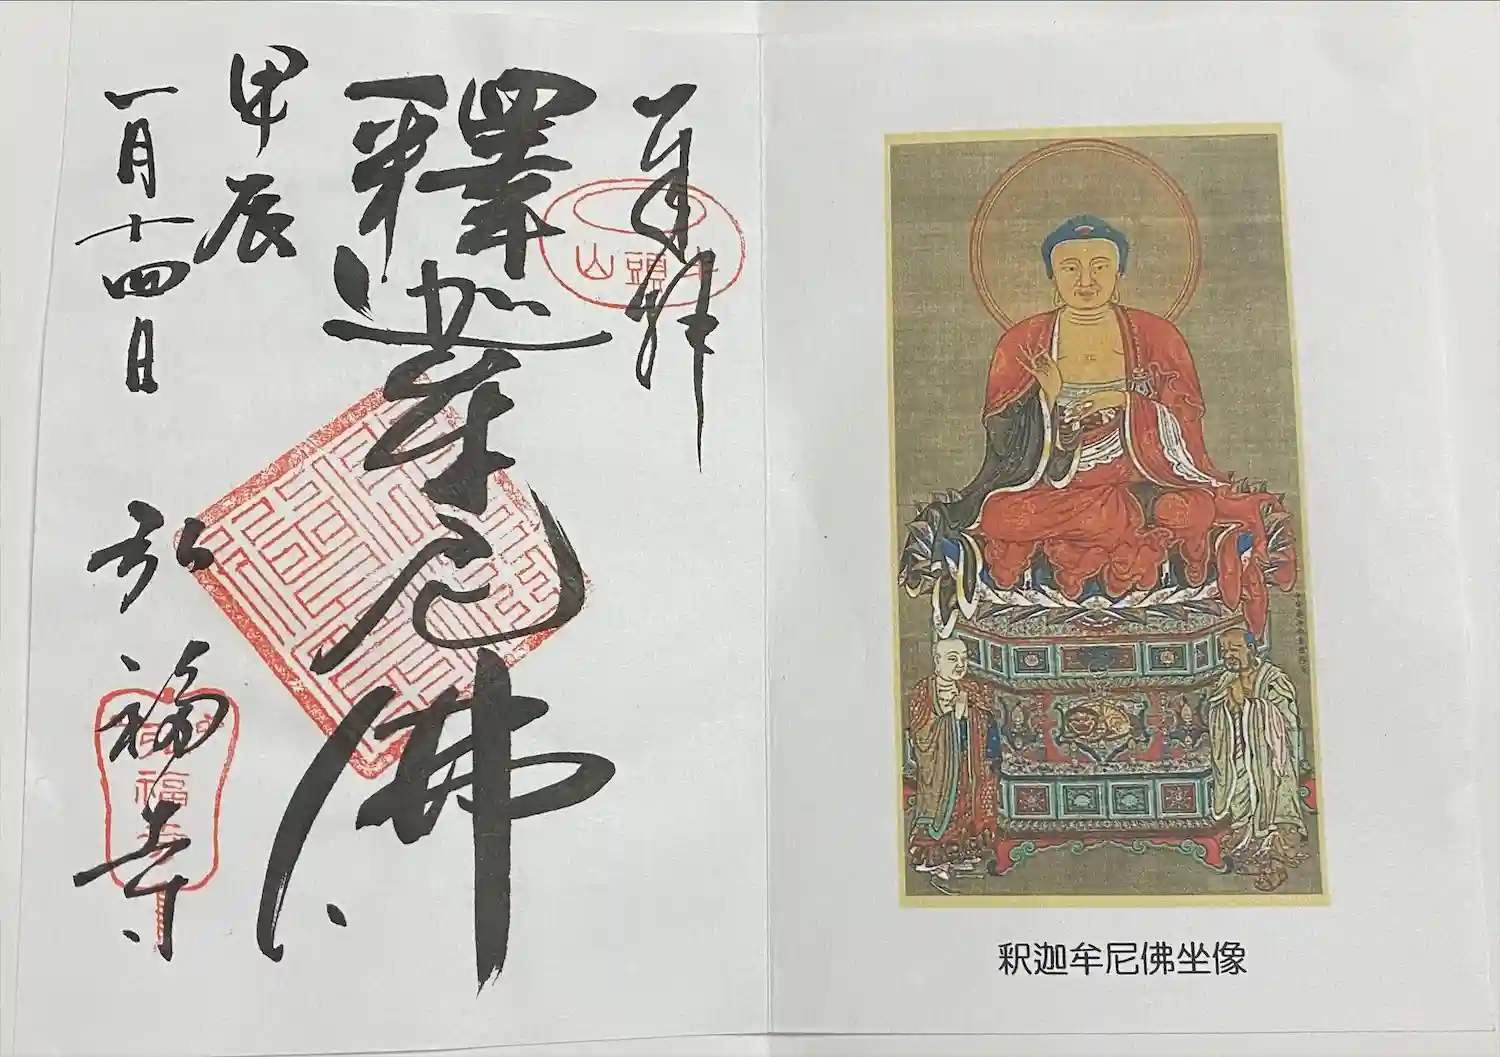 奉拜
釋迦牟尼佛
甲辰
一月十四日
弘福寺
牛頭山
福
釈迦牟尼佛坐像